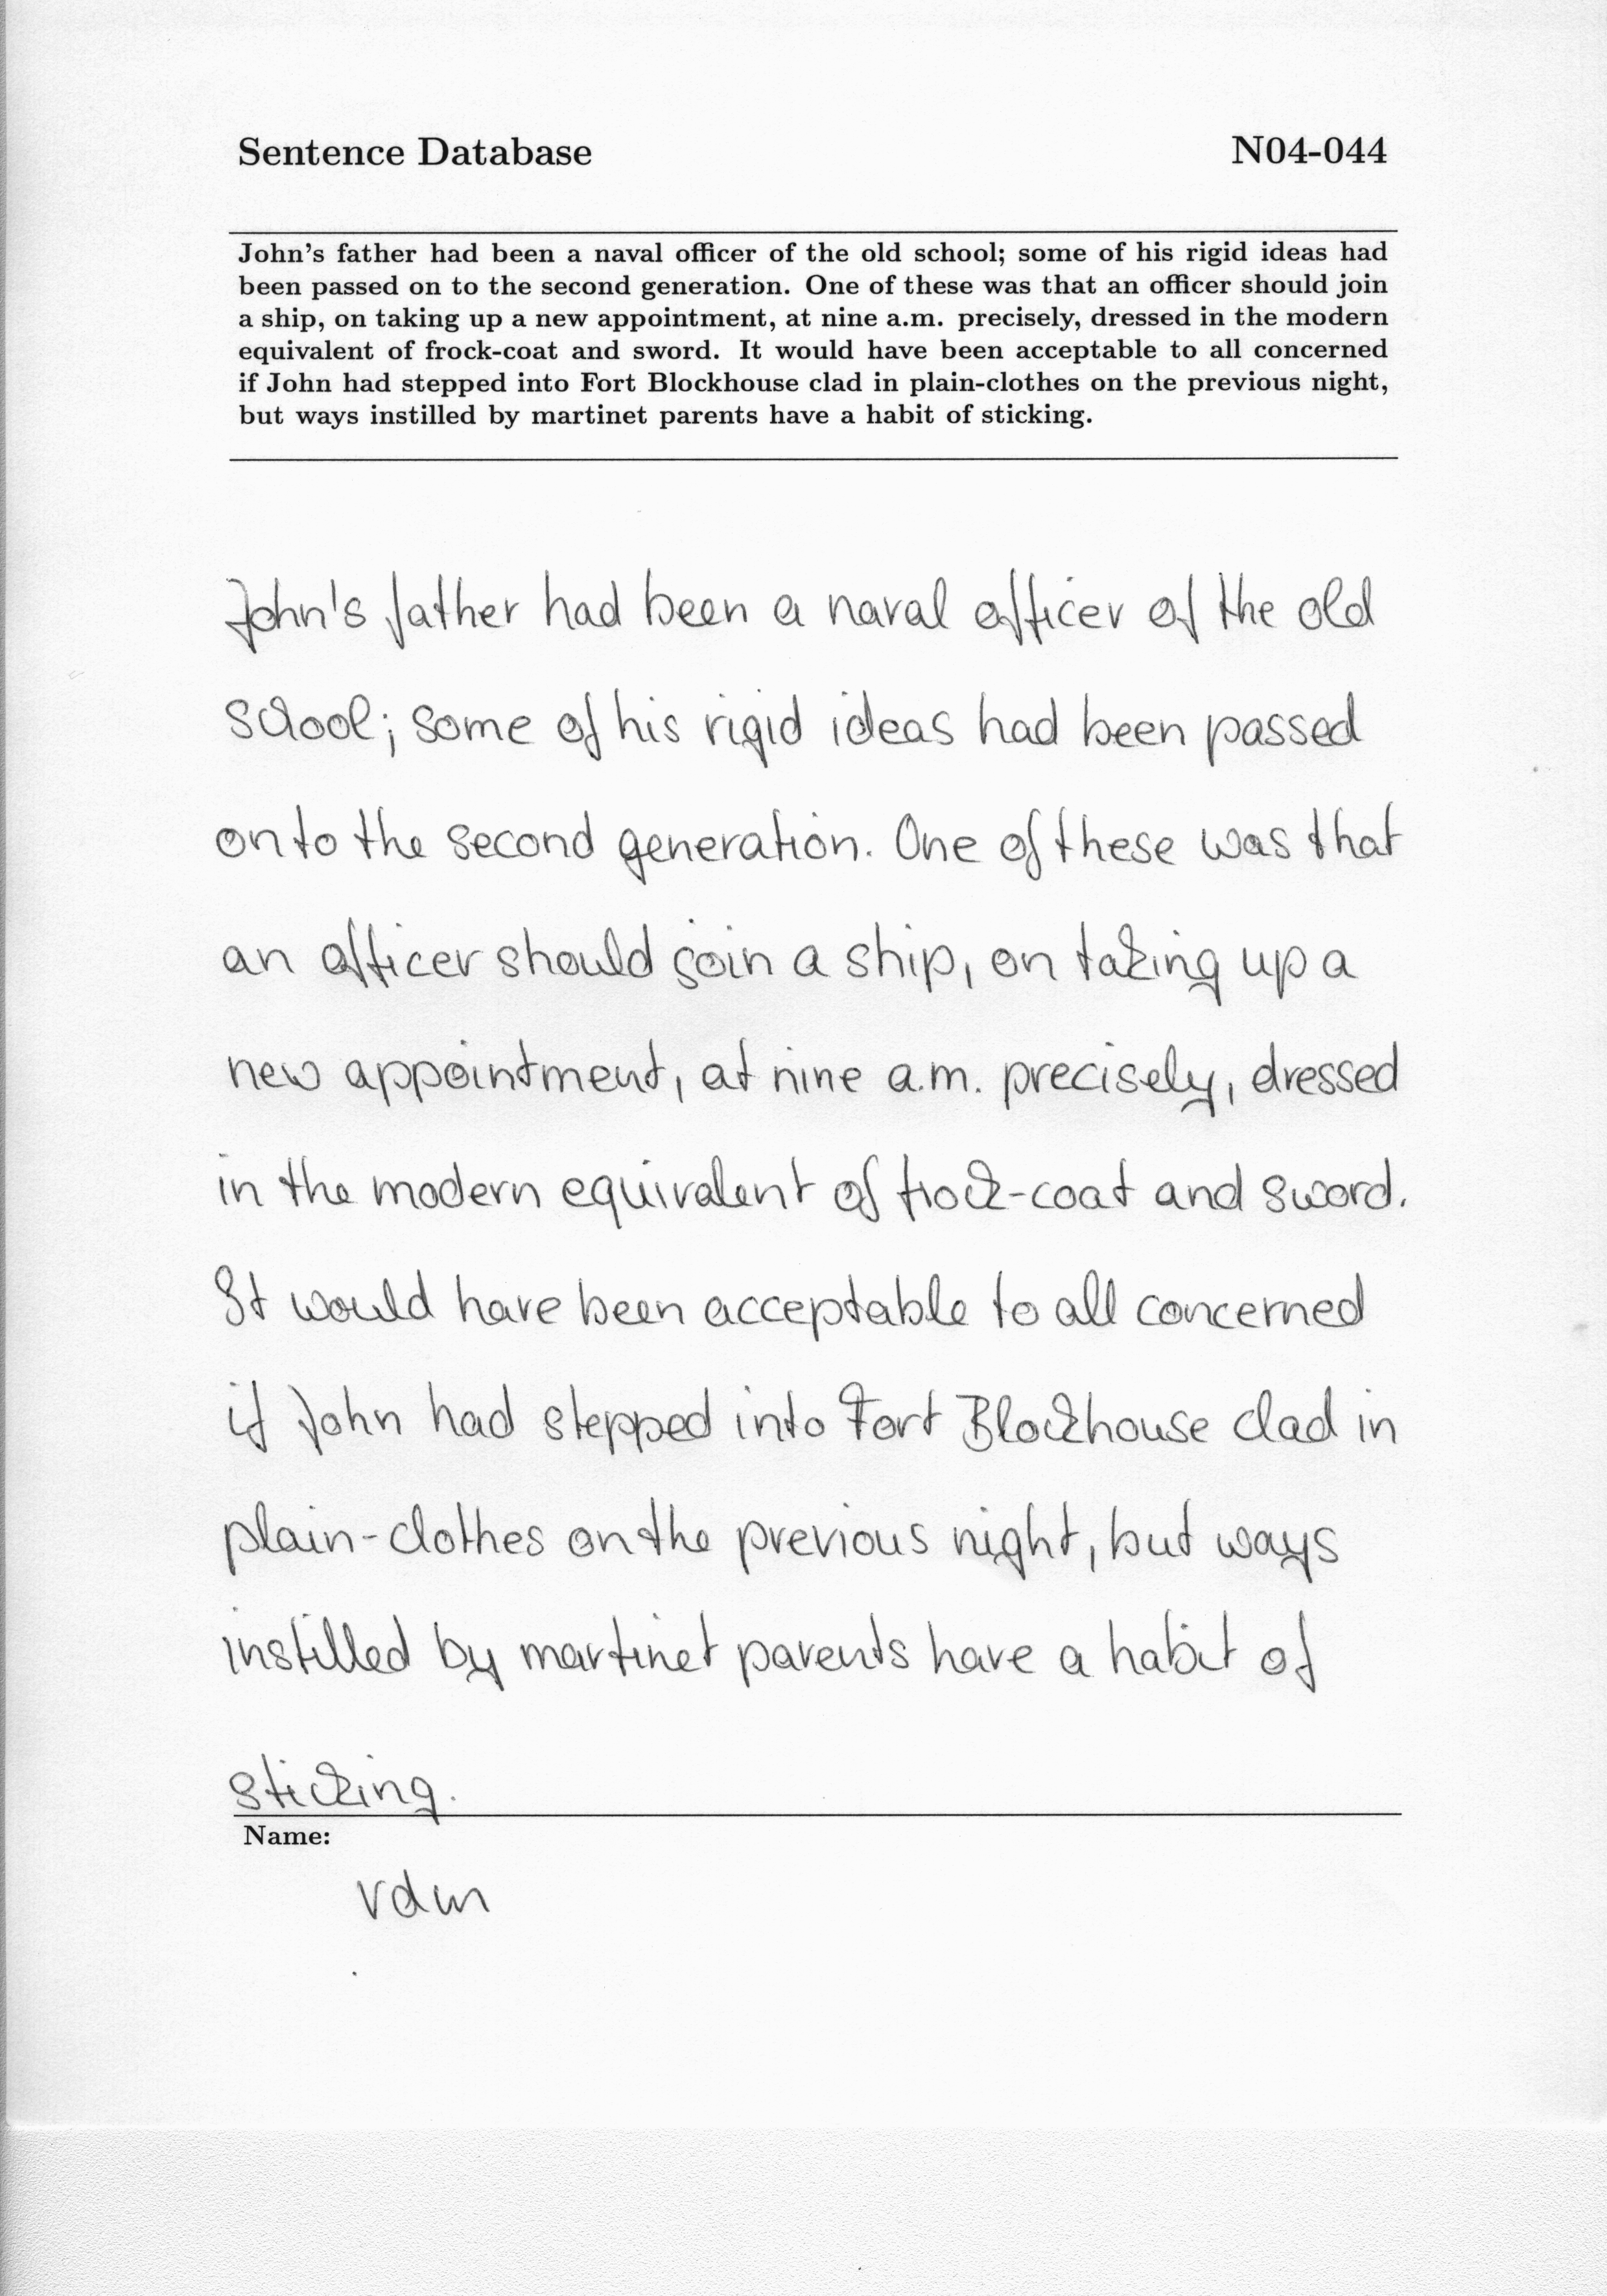 Sentence Database N04-044
John's father had been a naval officer of the old school; some of his rigid ideas had
been passed on to the second generation. One of these was that an officer should join
a ship, on taking up a new appointment, at nine a.m. precisely, dressed in the modern
equivalent of frock-coat and sword. It would have been acceptable to all concerned
if John had stepped into Fort Blockhouse clad in plain-clothes on the previous night,
but ways instilled by martinet parents have a habit of sticking.
John's father had been a naval officer of the old
school; some of his rigid ideas had been passed
on to the second generation. One of these was that
an officer should join a ship, on taking up a
new appointment, at nine a.m. precisely, dressed
in the modern equivalent of frock-coat and sword.
It would have been acceptable to all concerned
if John had stepped into Fort Blockhouse clad in
plain-clothes on the previous night, but ways
instilled by martinet parents have a habit of
sticking.
Name:
vdm